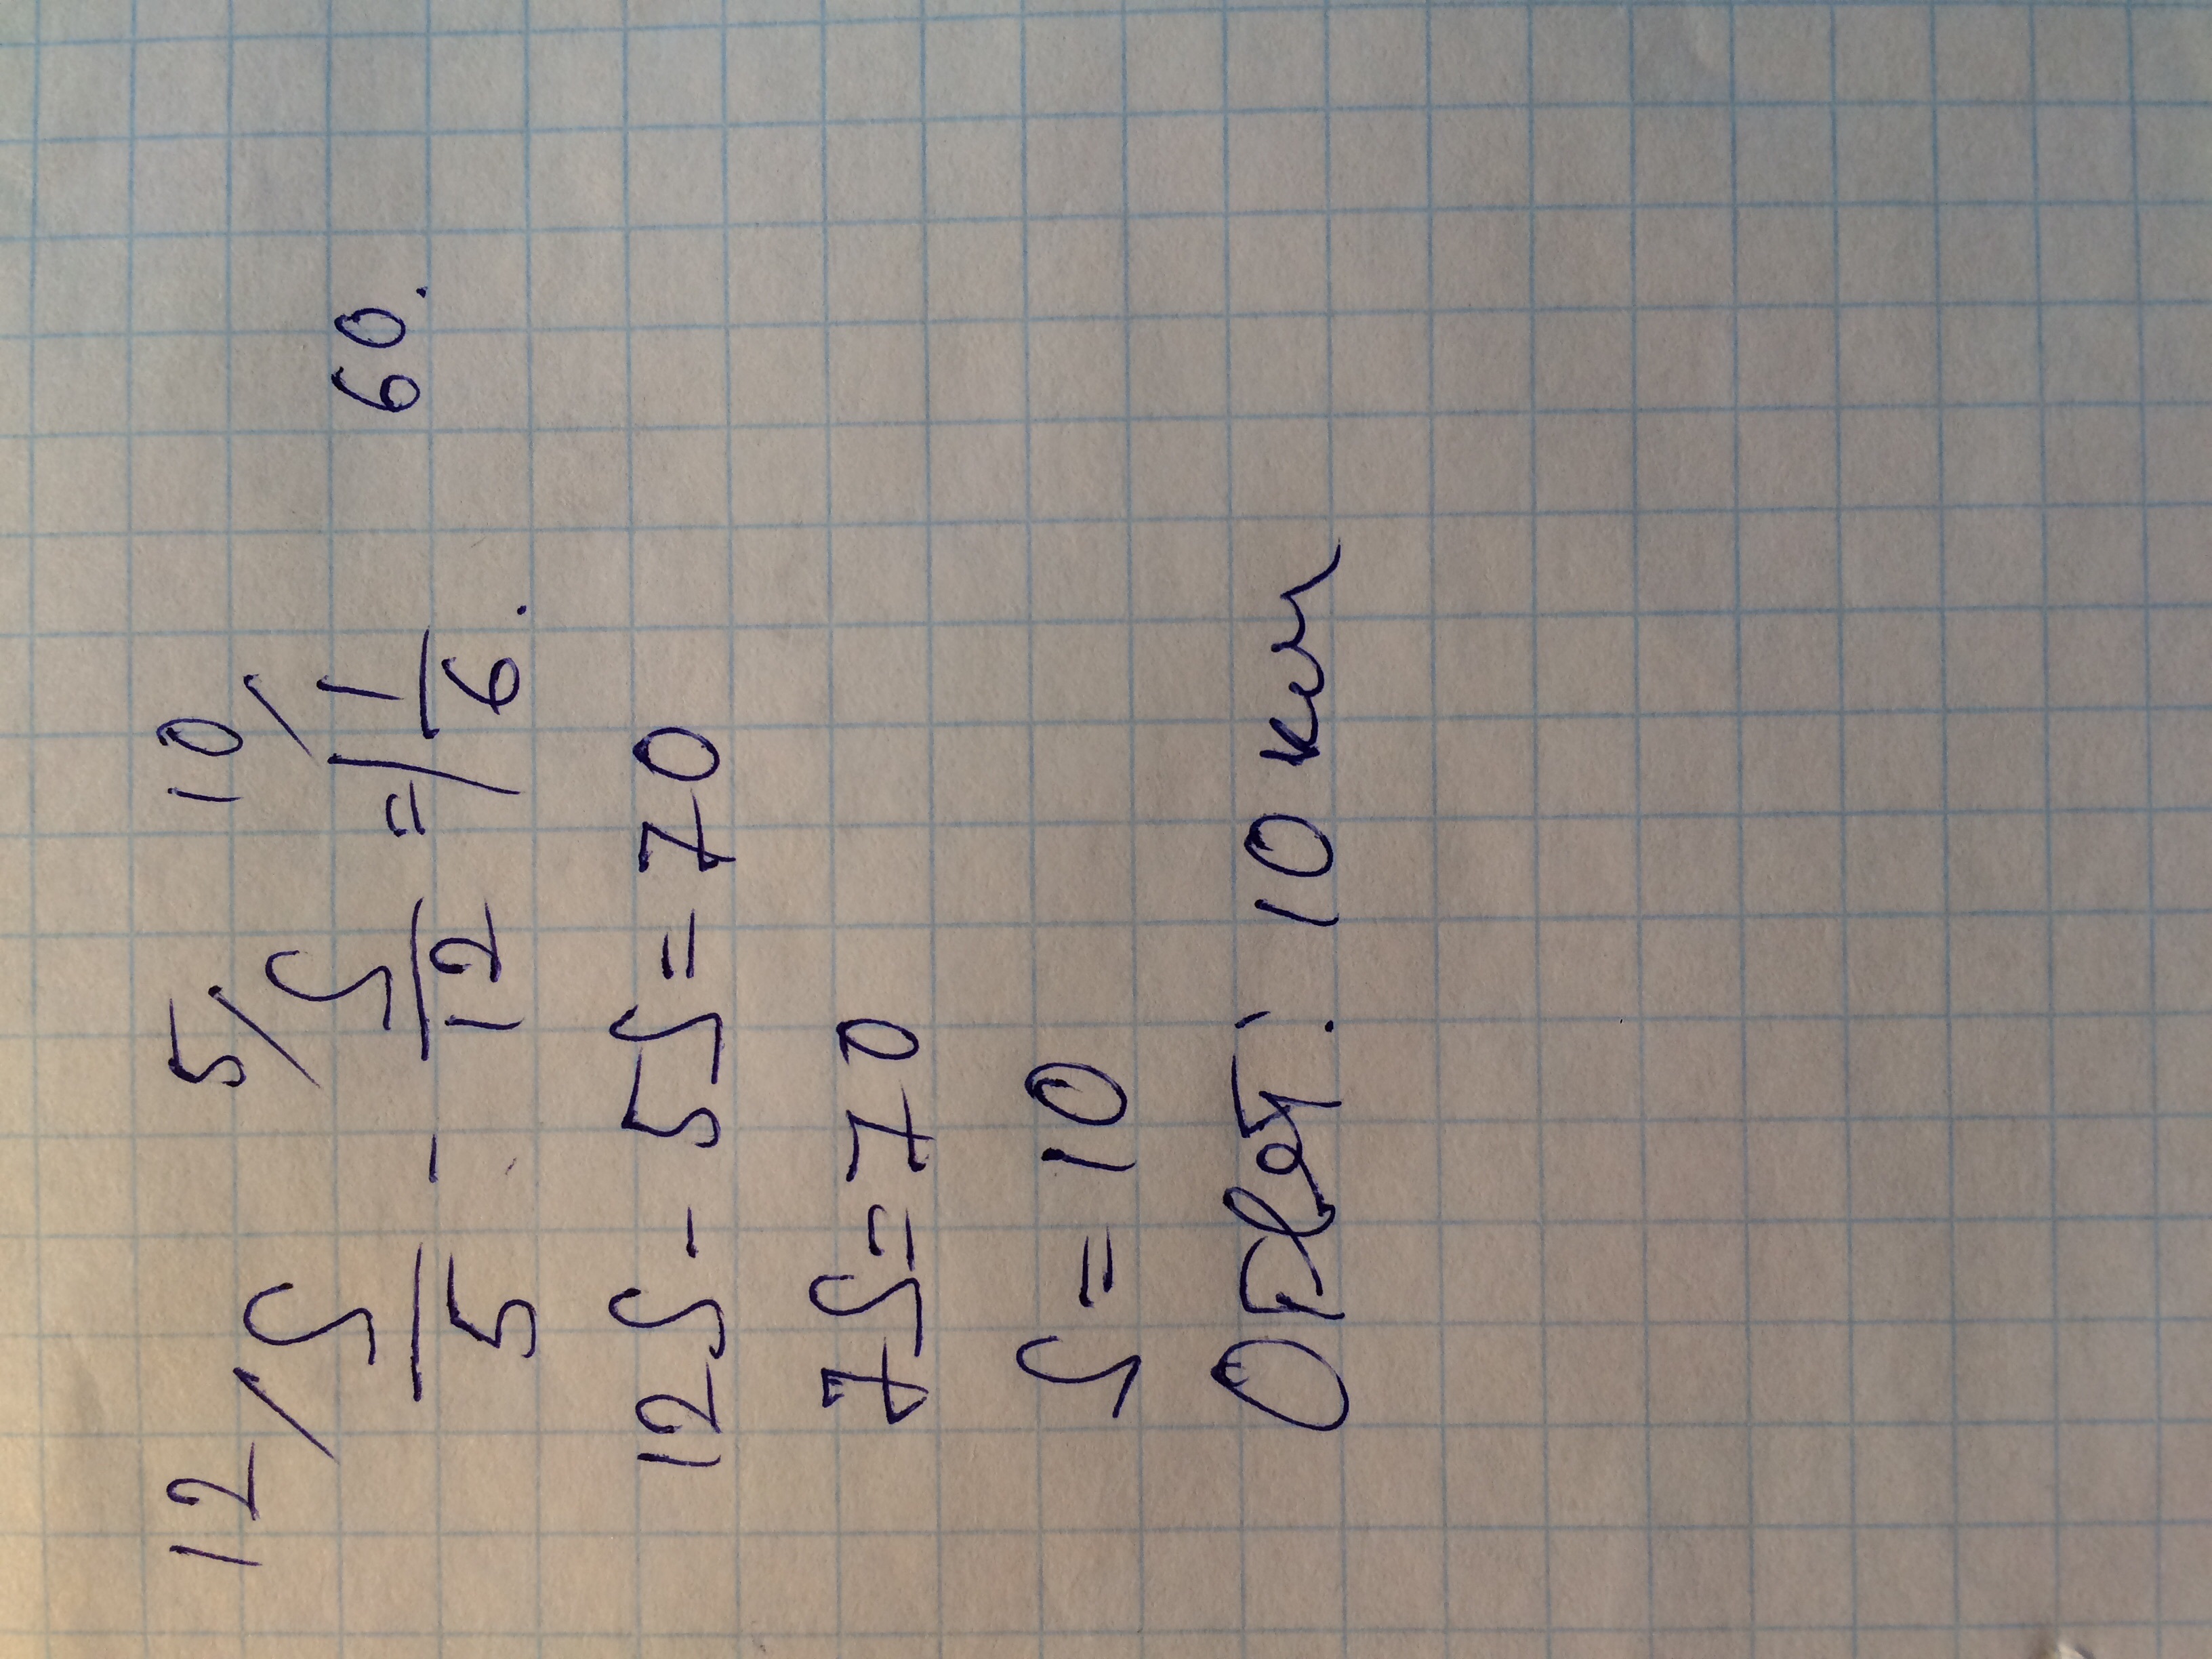 12/ S/5 - 5/ S/12 = 10/ 1 1/6. 60.
12S - 5S = 70
7S = 70
S = 10
Ответ: 10 км